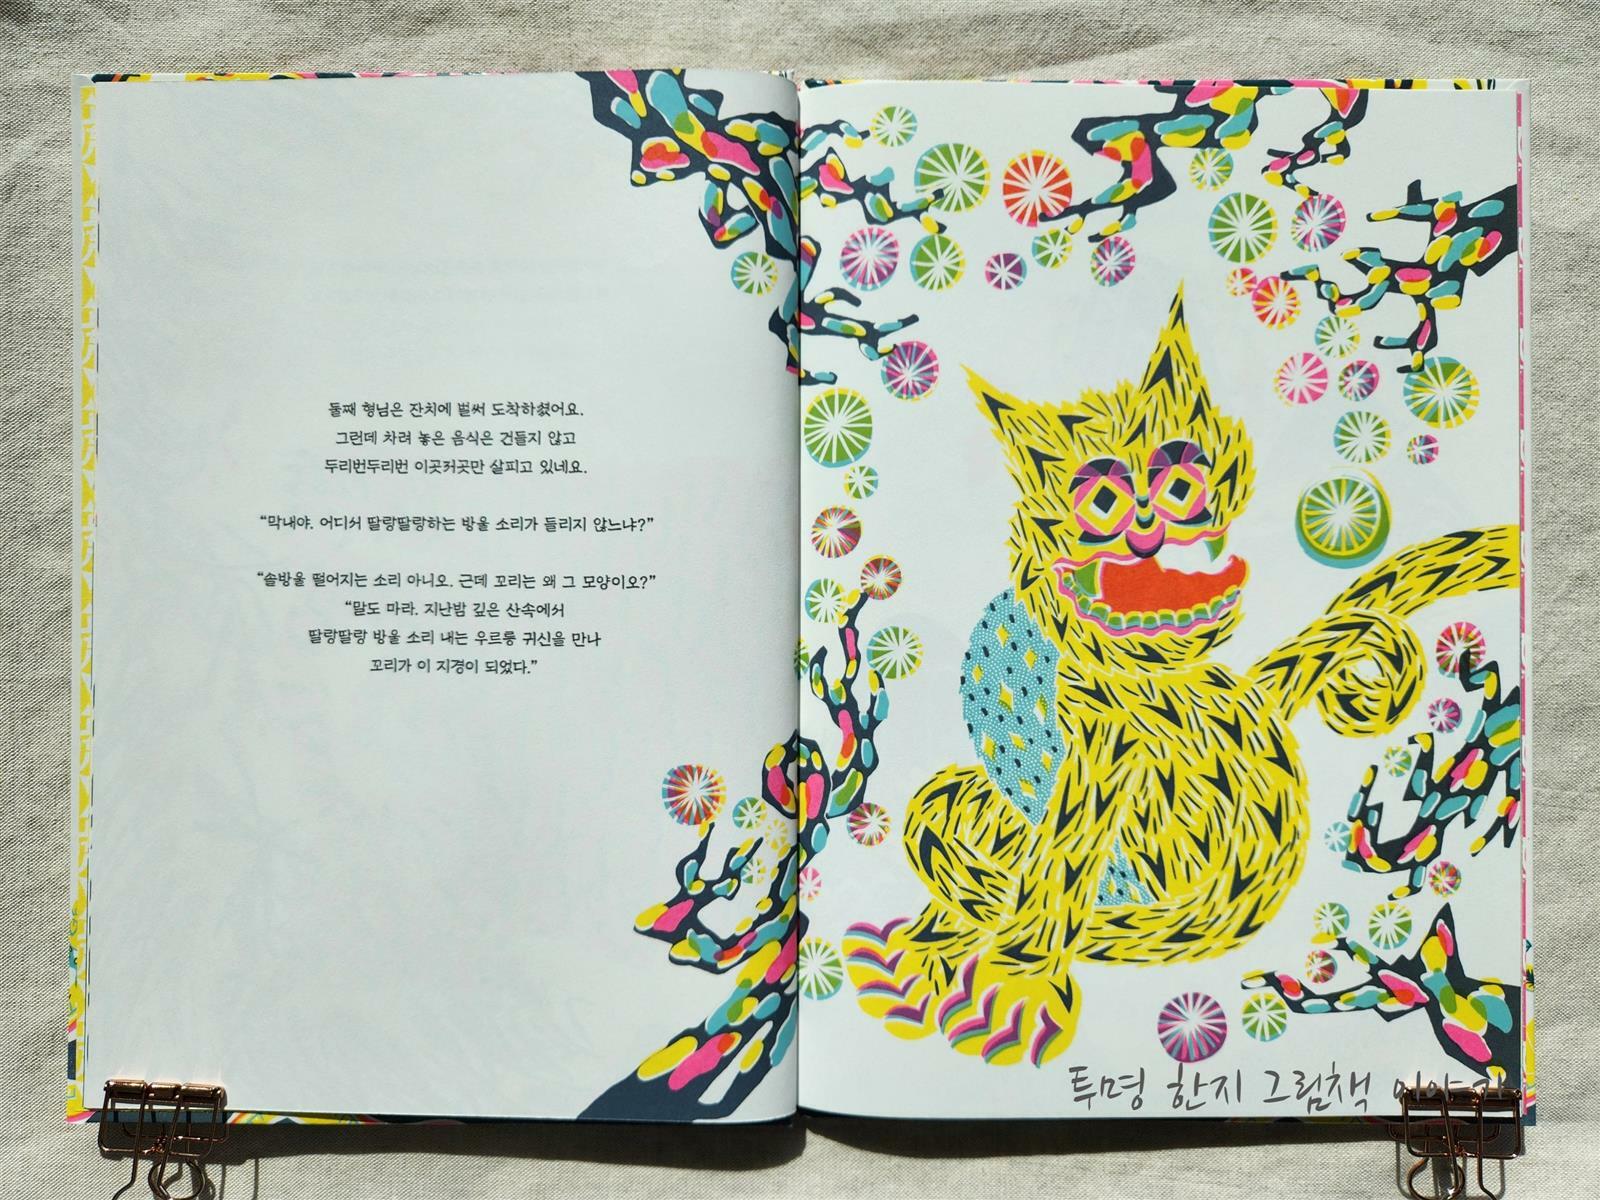 둘째 형님은 잔치에 벌써 도착하셨어요.
그런데 차려 놓은 음식은 건들지 않고
두리번두리번 이곳저곳만 살피고 있네요.
“막내야. 어디서 딸랑딸랑하는 방울 소리가 들리지 않느냐?”
“솔방울 떨어지는 소리 아니오. 근데 꼬리는 왜 그 모양이오?”
“말도 마라. 지난밤 깊은 산속에서
딸랑딸랑 방울 소리 내는 우르릉 귀신을 만나
꼬리가 이 지경이 되었다.”
투명 한지 그림책 이야기